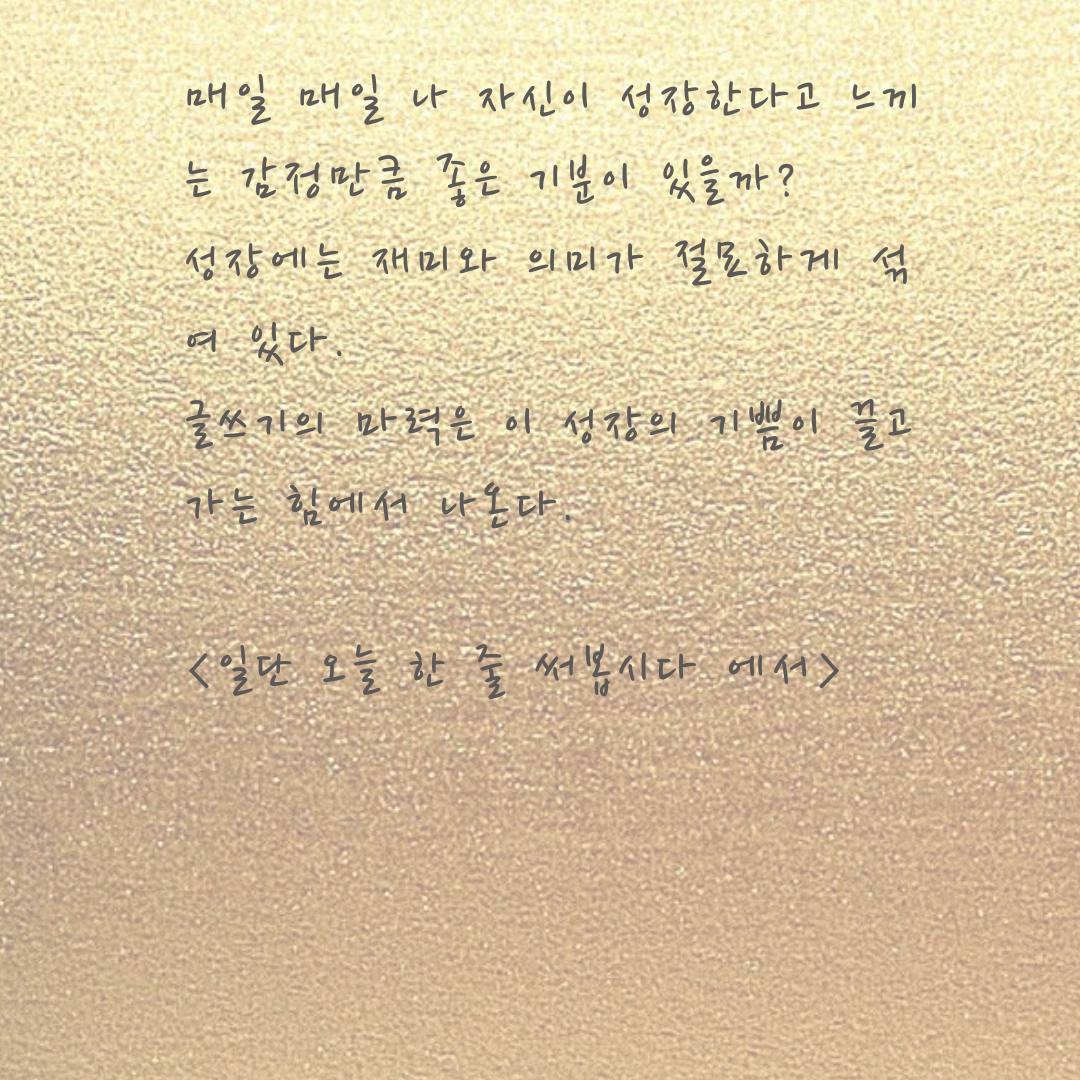 매일 매일 나 자신이 성장한다고 느끼
는 감정만큼 좋은 기분이 있을까?
성장에는 재미와 의미가 절묘하게 섞
여 있다.
글쓰기의 마력은 이 성장의 기쁨이 끌고
가는 힘에서 나온다.
<일단 오늘 한 줄 써봅시다 에서>